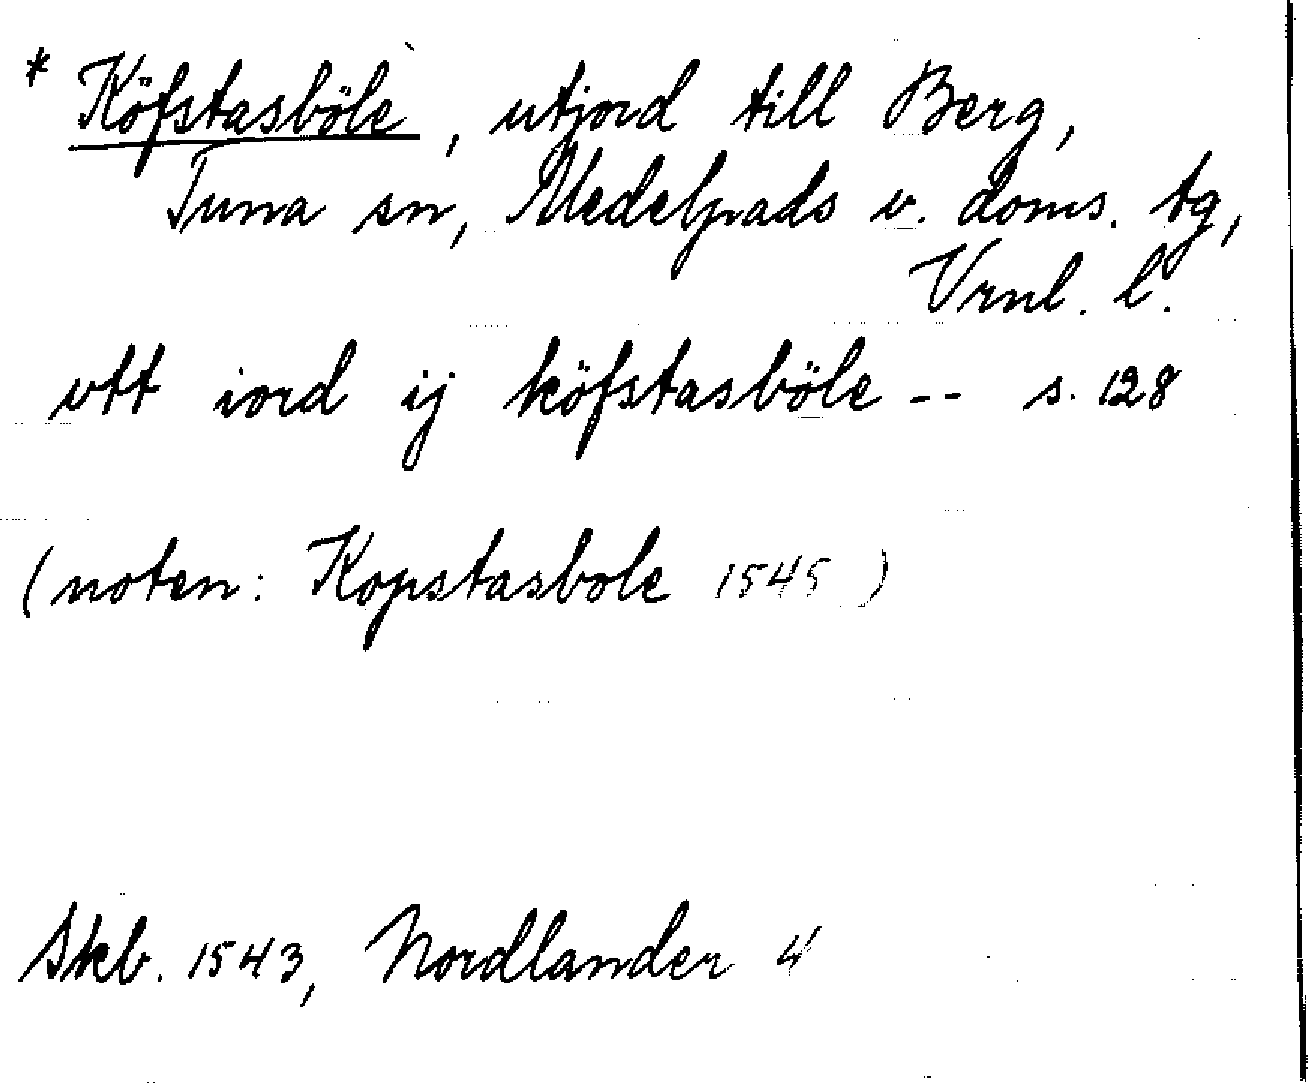 * Köfstasböle, utjord till Berg,
Tuna sn, Medelpads v. doms. tg,
Vrnl. l.
vtt iord ij köfstasböle -- s. 128
(noten: Kopstasbole 1545)
Skb. 1543, Nordlander 4